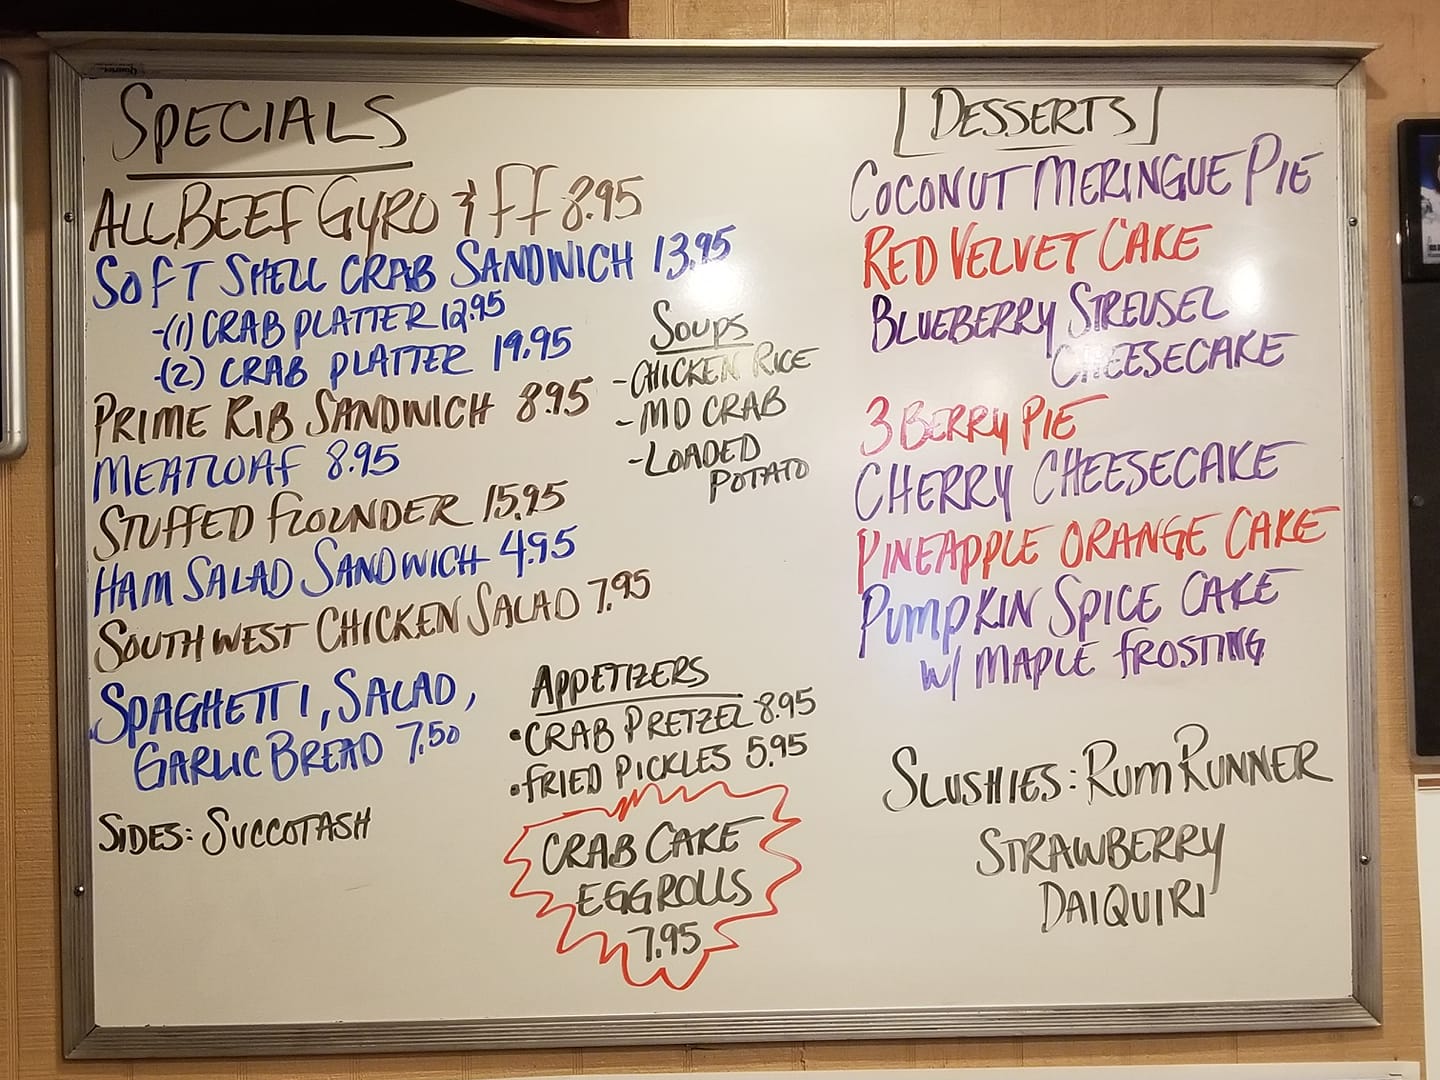 SPECIALS
ALL BEEF GYRO & FF 8.95
SOFT SHELL CRAB SANDWICH 13.95
-(1) CRAB PLATTER 12.95
-(2) CRAB PLATTER 19.95
PRIME RIB SANDWICH 8.95
MEATLOAF 8.95
STUFFED FLOUNDER 15.95
HAM SALAD SANDWICH 4.95
SOUTHWEST CHICKEN SALAD 7.95
SPAGHETTI, SALAD,
GARLIC BREAD 7.50
SIDES: SUCCOTASH
SOUPS
-CHICKEN RICE
-MD CRAB
-LOADED
POTATO
APPETIZERS
•CRAB PRETZEL 8.95
•FRIED PICKLES 5.95
CRAB CAKE
EGGROLLS
7.95
[DESSERTS]
COCONUT MERINGUE PIE
RED VELVET CAKE
BLUEBERRY STREUSEL
CHEESECAKE
3 BERRY PIE
CHERRY CHEESECAKE
PINEAPPLE ORANGE CAKE
PUMPKIN SPICE CAKE
W/ MAPLE FROSTING
SLUSHIES: RUM RUNNER
STRAWBERRY
DAIQUIRI